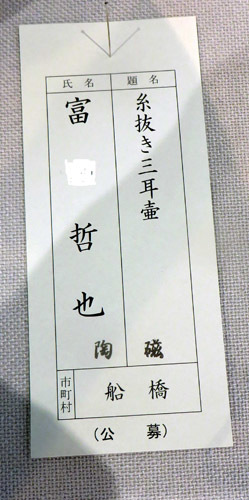 題名
糸抜き三耳壷
氏名
富 哲也
陶磁
市町村
船橋
(公募)